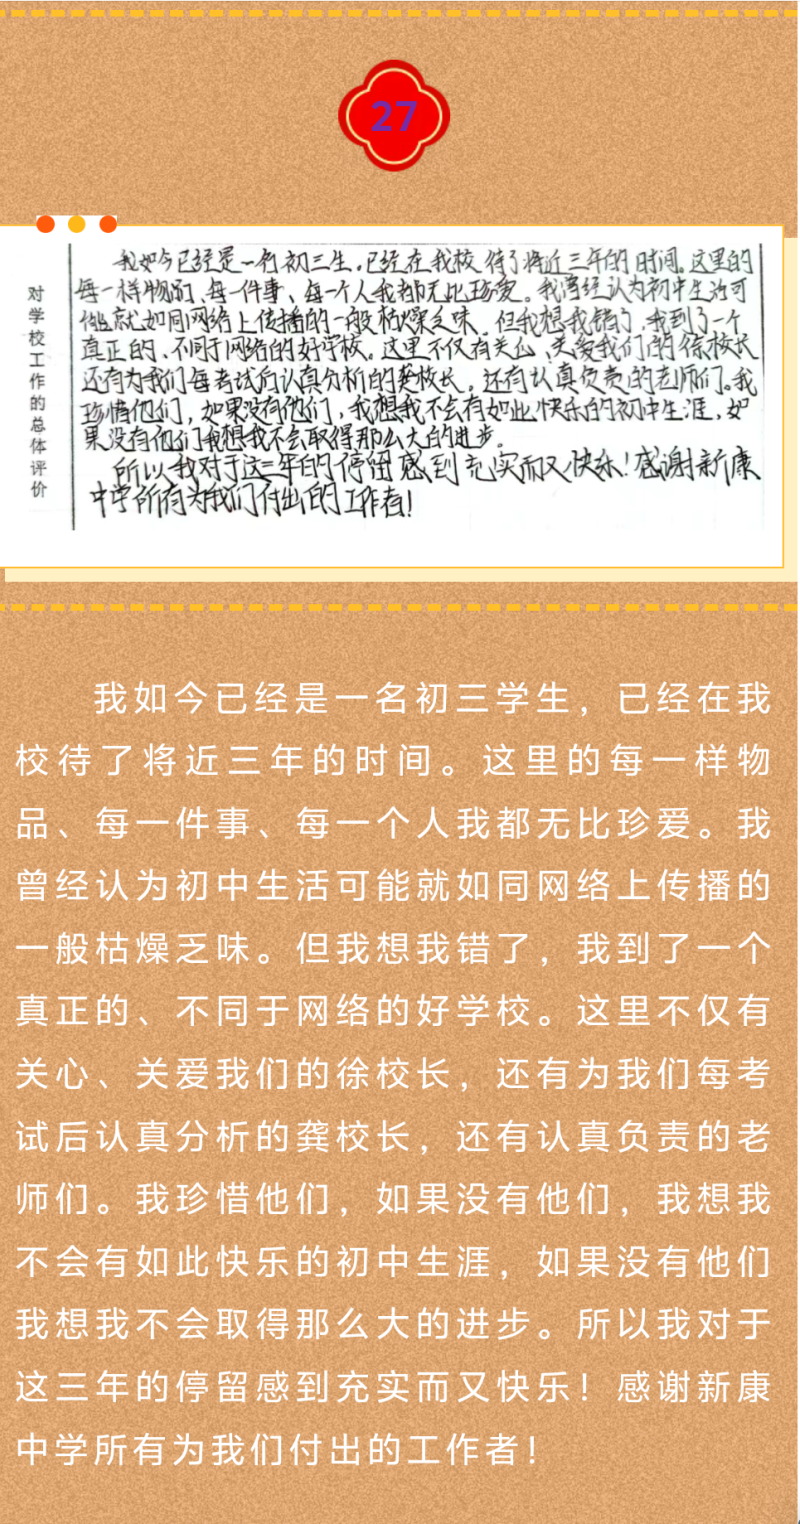 27
对学校工作的总体评价
我如今已经是一名初三生，已经在我校待了将近三年的时间。这里的
每一样物品、每一件事、每一个人我都无比珍爱。我曾经认为初中生活可
能就如同网络上传播的一般枯燥乏味。但我想我错了，我到了一个
真正的、不同于网络的好学校。这里不仅有关心、关爱我们的徐校长
还有为我们每考试后认真分析的龚校长，还有认真负责的老师们。我
珍惜他们，如果没有他们，我想我不会有如此快乐的初中生涯，如
果没有他们我想我不会取得那么大的进步。
所以我对于这三年的停留感到充实而又快乐！感谢新康
中学所有为我们付出的工作者！
我如今已经是一名初三学生，已经在我
校待了将近三年的时间。这里的每一样物
品、每一件事、每一个人我都无比珍爱。我
曾经认为初中生活可能就如同网络上传播的
一般枯燥乏味。但我想我错了，我到了一个
真正的、不同于网络的好学校。这里不仅有
关心、关爱我们的徐校长，还有为我们每考
试后认真分析的龚校长，还有认真负责的老
师们。我珍惜他们，如果没有他们，我想我
不会有如此快乐的初中生涯，如果没有他们
我想我不会取得那么大的进步。所以我对于
这三年的停留感到充实而又快乐！感谢新康
中学所有为我们付出的工作者！